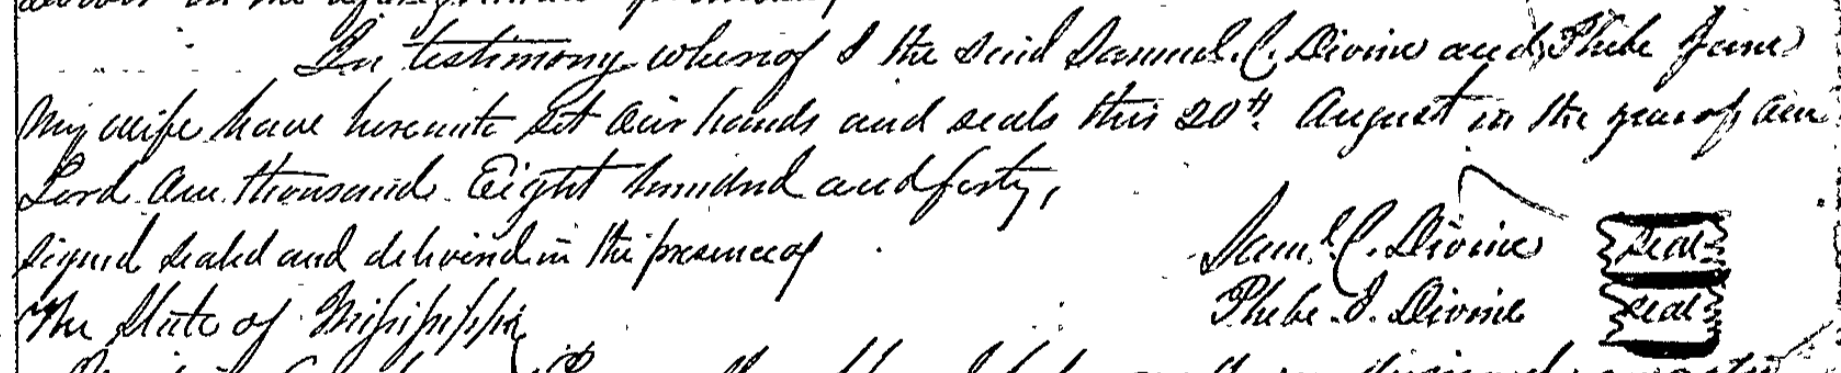 In testimony whereof I the said Samuel. C. Divine and Phebe Jane
my wife have hereunto set our hands and seals this 20th. August in the year of our
Lord one thousand Eight hundred and forty,
signed sealed and delivered in the presence of Saml. C. Divine seal
The State of Mississippi Phebe. J. Divine seal